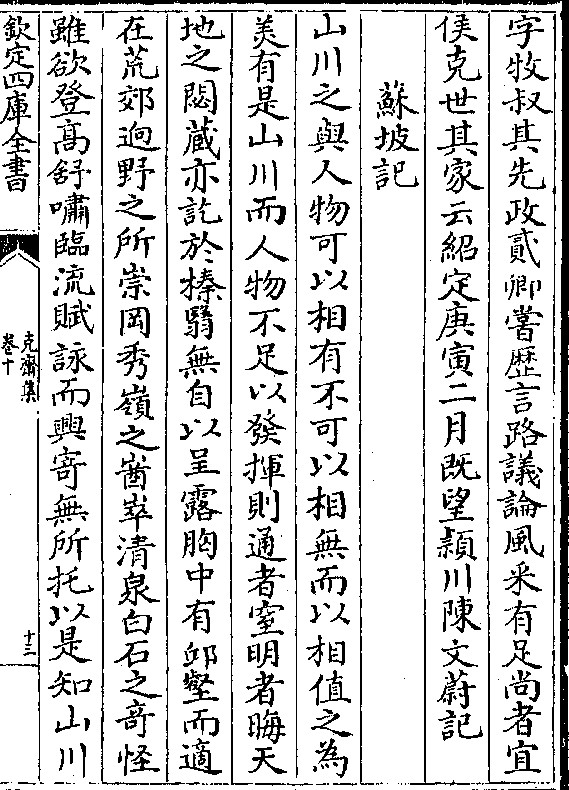 字牧叔其先政貳卿嘗歴言路議論風采有足尚者宜
侯克世其家云紹定庚寅二月既望頴川陳文蔚記
蘇坡記
山川之與人物可以相有不可以相無而以相值之為
美有是山川而人物不足以發揮則通者窒明者晦天
地之閟藏亦託於榛翳無自以呈露胸中有邱壑而適
在荒郊逈野之所崇岡秀嶺之崷崒清泉白石之竒怪
雖欲登髙舒嘯臨流賦詠而興寄無所托以是知山川
欽定四庫全書
克齋集
卷十
十三